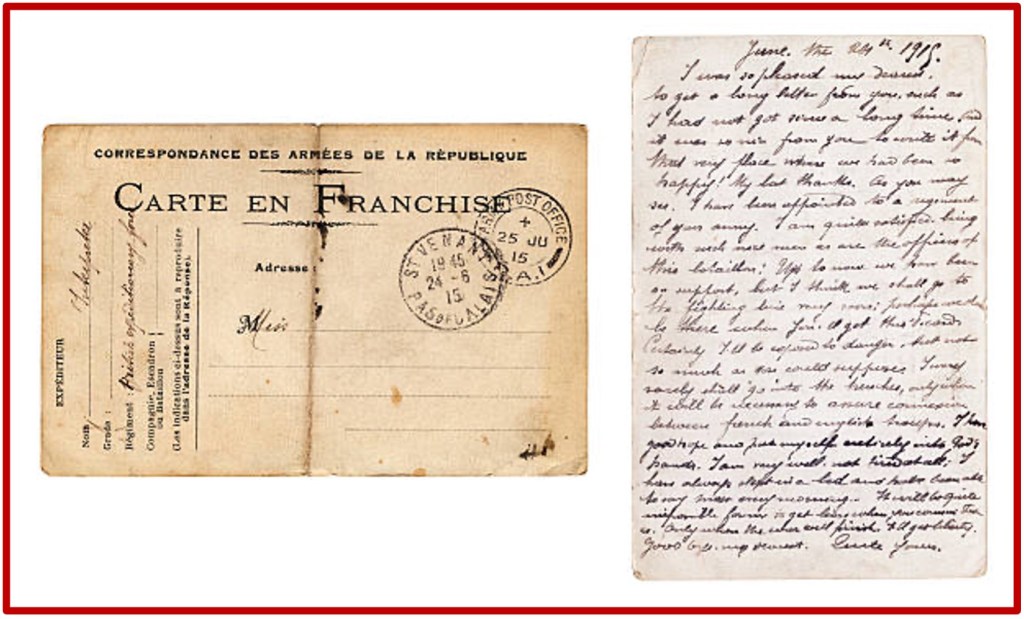 CORRESPONDANCE DES ARMÉES DE LA RÉPUBLIQUE
CARTE EN FRANCHISE
Adresse :
Miss
ST VENANT
19 45
24 - 6
15
PAS DE CALAIS
POST OFFICE
25 JU
15
A.1
EXPÉDITEUR
Nom :
Grade :
Régiment : British expeditionary
Compagnie, Escadron
ou Bataillon
(Les indications ci-dessus sont à reproduire
dans l'adresse de la Réponse).
June. the 24th. 1915.
I was so pleased my dearest,
to get a long letter from you, such as
I had not got since a long time, and
it was so nice from you to write it from
that very place where we had been so
happy! My best thanks. As you may
see. I have been appointed to a regiment
of your army. I am quite satisfied being
with such nice men as are the officers of
this bataillon: Up to now we have been
on support, but I think we shall go to
the fighting line very soon; perhaps we
be there when you'll get this card.
Certainly I'll be exposed to danger, but not
so much as you could suppose: I very
rarely shall go into the trenches, only when
it will be necessary to assure connexion
between french and english troops. I have
good hope and put myself entirely into God's
hands. I am very well, not tired at all; I
have always slept in a bed and been able
to say mass every morning. It will be quite
impossible for me to get leave when you
Only when the war will finish. I'll get liberty.
Good bye, my dearest. Yours.